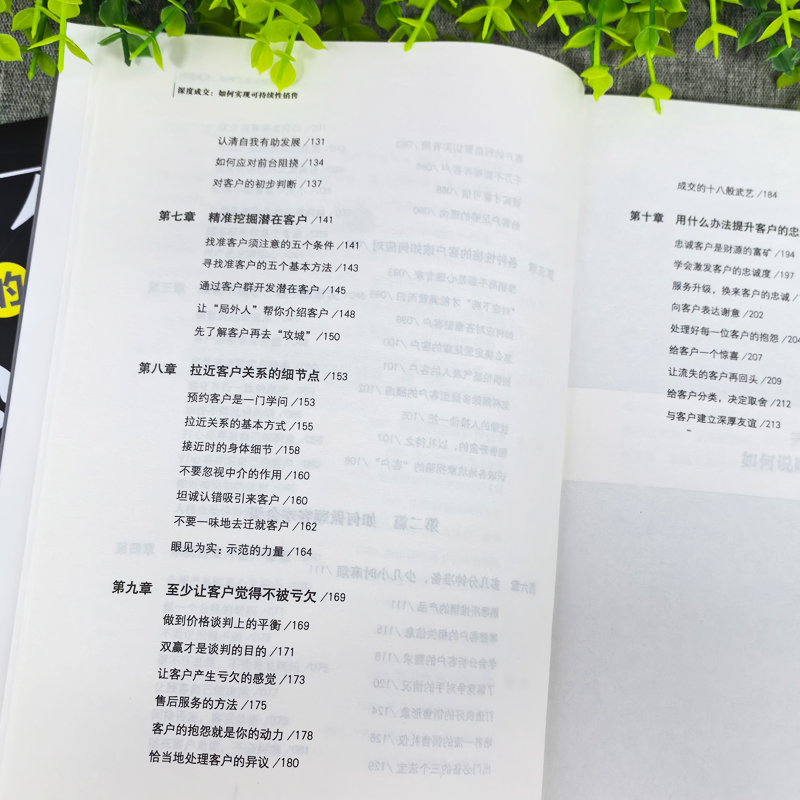 深度成交：如何实现可持续性销售
认清自我有助发展 /131
如何应对前台阻挠 /134
对客户的初步判断 /137
第七章 精准挖掘潜在客户 /141
找准客户须注意的五个条件 /141
寻找准客户的五个基本方法 /143
通过客户群开发潜在客户 /145
让“局外人”帮你介绍客户 /148
先了解客户再去“攻城” /150
第八章 拉近客户关系的细节点 /153
预约客户是一门学问 /153
拉近关系的基本方式 /155
接近时的身体细节 /158
不要忽视中介的作用 /160
坦诚认错吸引来客户 /160
不要一味地去迁就客户 /162
眼见为实：示范的力量 /164
第九章 至少让客户觉得不被亏欠 /169
做到价格谈判上的平衡 /169
双赢才是谈判的目的 /171
让客户产生亏欠的感觉 /173
售后服务的方法 /175
客户的抱怨就是你的动力 /178
恰当地处理客户的异议 /180
成交的十八般武艺 /184
第十章 用什么办法提升客户的忠
忠诚客户是财源的富矿 /194
学会激发客户的忠诚度 /197
服务升级，换来客户的忠诚
向客户表达谢意 /202
处理好每一位客户的抱怨 /204
给客户一个惊喜 /207
让流失的客户再回头 /209
给客户分类，决定取舍 /212
与客户建立深厚友谊 /213
的